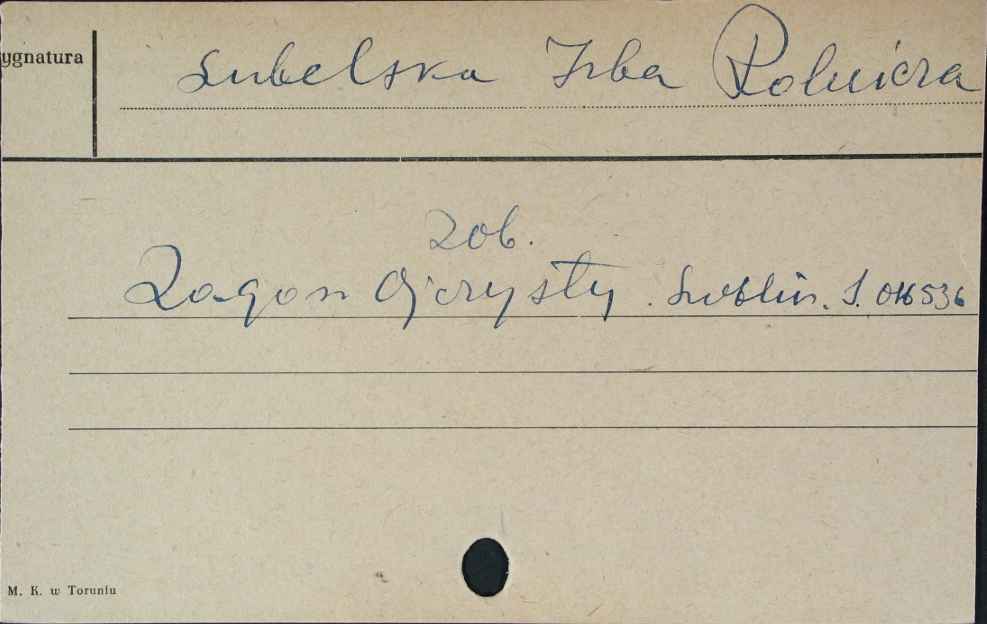 ygnatura
Lubelska Izba Rolnicza
Zob.
Zagon Ojczysty. Lublin. S. 016536
M. K. w Toruniu